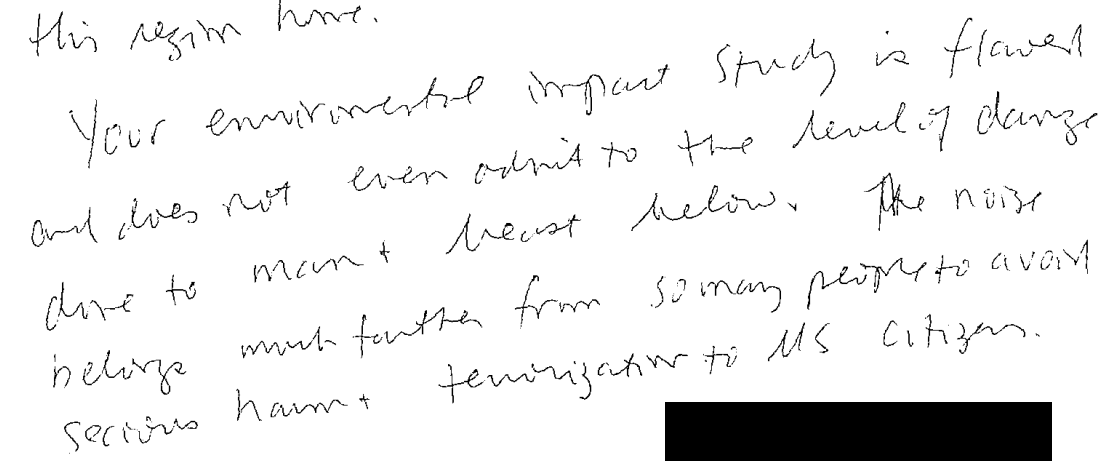 this region home.
Your enviromental impact study is flawed
and does not even admit to the level of danger
done to man + beast below. The noise
belongs much farther from so many people to avoid
serious harm + terrorization to US citizens.